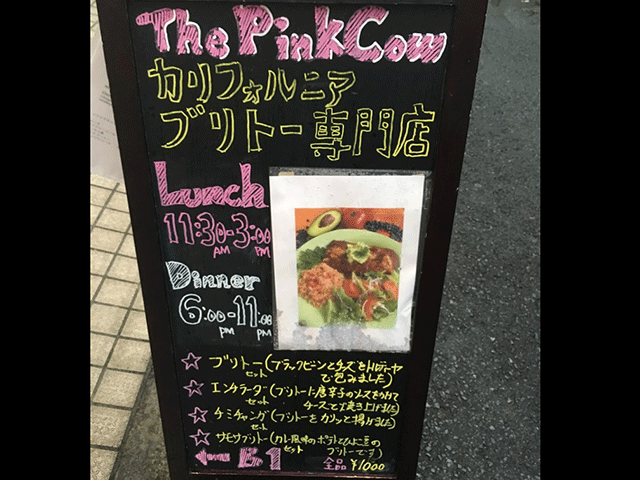 The Pink Cow
カリフォルニア
ブリトー専門店
Lunch
11:30-3:00
AM PM
Dinner
6:00-11:00
PM PM
☆ ブリトー(ブラックビーンとチーズをトルティーヤ
セット で包みました)
☆ エンチラーダ(ブリトーに唐辛子のソースをかけて
セット チーズで焼き上げました)
☆ チミチャンガ(ブリトーをカリッと揚げました)
セット
☆ サモサブリトー(カレー風味のポテトとひよこ豆の
セット ブリトーです)
← B1 全品 ¥1000